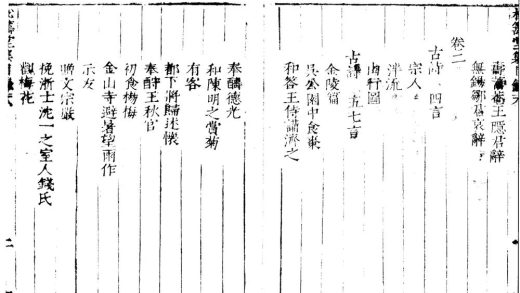 王隱君辭
無錫鄒君哀辭
卷二
古詩 四言
宗人
泮流
山行圖
古詩 五七言
金陵篇
吳公園中食棗
和答王侍講濟之
奉酬德光
和陳明之賞菊
有客
都下將歸述懷
奉酧王秋官
初食楊梅
金山寺避暑望雨作
示友
贈文宗嚴
挽浙士沈一之室人錢氏
觀梅花